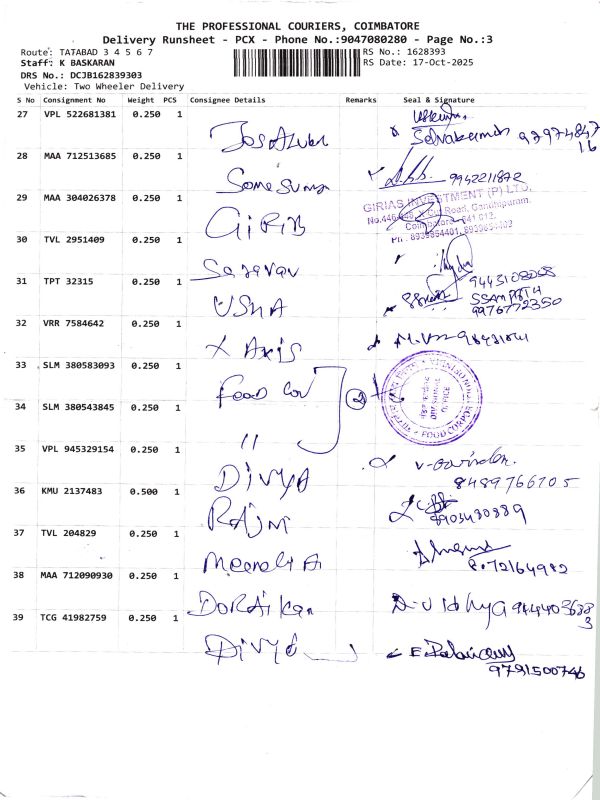 THE PROFESSIONAL COURIERS, COIMBATORE
Delivery Runsheet - PCX - Phone No.:9047080280 - Page No.:3
Route: TATABAD 3 4 5 6 7 RS No.: 1628393
Staff: K BASKARAN RS Date: 17-Oct-2025
DRS No.: DCJB162839303
Vehicle: Two Wheeler Delivery
S No Consignment No Weight PCS Consignee Details Remarks Seal & Signature
27 VPL 522681381 0.250 1
28 MAA 712513685 0.250 1
9942211872
29 MAA 304026378 0.250 1
GIRIAS INVESTMENT (P) LTD.
Coimbatore - 641 012.
30 TVL 2951409 0.250 1
Saravan
31 TPT 32315 0.250 1
USHA
9976772350
32 VRR 7584642 0.250 1
X Axis
33 SLM 380583093 0.250 1
Food Cov 2
FOOD CORPOR
34 SLM 380543845 0.250 1
"
35 VPL 945329154 0.250 1
DIVYA
V-Govinden.
8489766705
36 KMU 2137483 0.500 1
RAJNI
8903430889
37 TVL 204829 0.250 1
38 MAA 712090930 0.250 1
DORAikan
D-Vidhya
39 TCG 41982759 0.250 1
DIVYA
9791500746